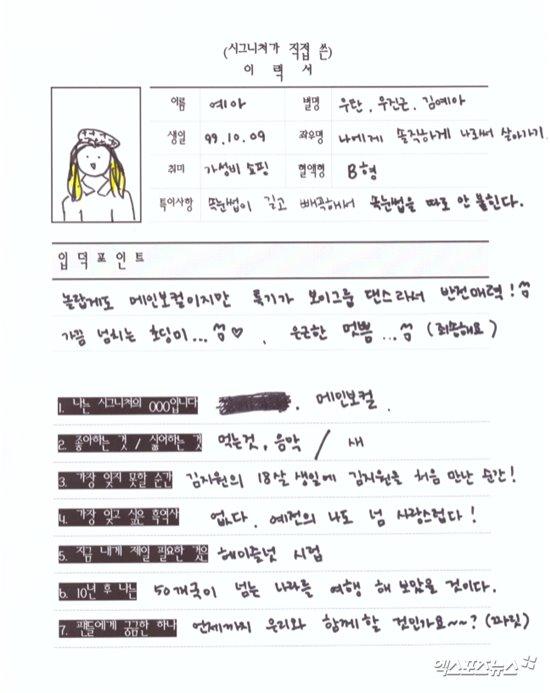 (시그니쳐가 직접 쓴)
이 력 서
이름 예아 별명 우란, 우진근, 김예아
생일 99.10.09 좌우명 나에게 솔직하게 나로써 살아가기.
취미 가성비 쇼핑 혈액형 B형
특이사항 속눈썹이 길고 빼곡해서 속눈썹을 따로 안 붙힌다.
입덕포인트
놀랍게도 메인보컬이지만 특기가 보이그룹 댄스라서 반전매력!
가끔 넘치는 호딩미...♡, 은근한 멋쁨... (죄송해요)
1. 나는 시그니쳐의 OOO입니다 . 메인보컬.
2. 좋아하는 것 / 싫어하는 것 먹는것, 음악 / 새
3. 가장 잊지 못할 순간 김지원의 18살 생일에 김지원을 처음 만난 순간!
4. 가장 잊고 싶은 흑역사 없다. 예전의 나도 넘 사랑스럽다!
5. 지금 내게 제일 필요한 것은 헤이즐넛 시럽
6. 10년 후 나는 50개국이 넘는 나라를 여행 해 보았을 것이다.
7. 팬들에게 궁금한 하나 언제까지 우리와 함께할 것인가요~~? (찌릿)
엑스포츠뉴스